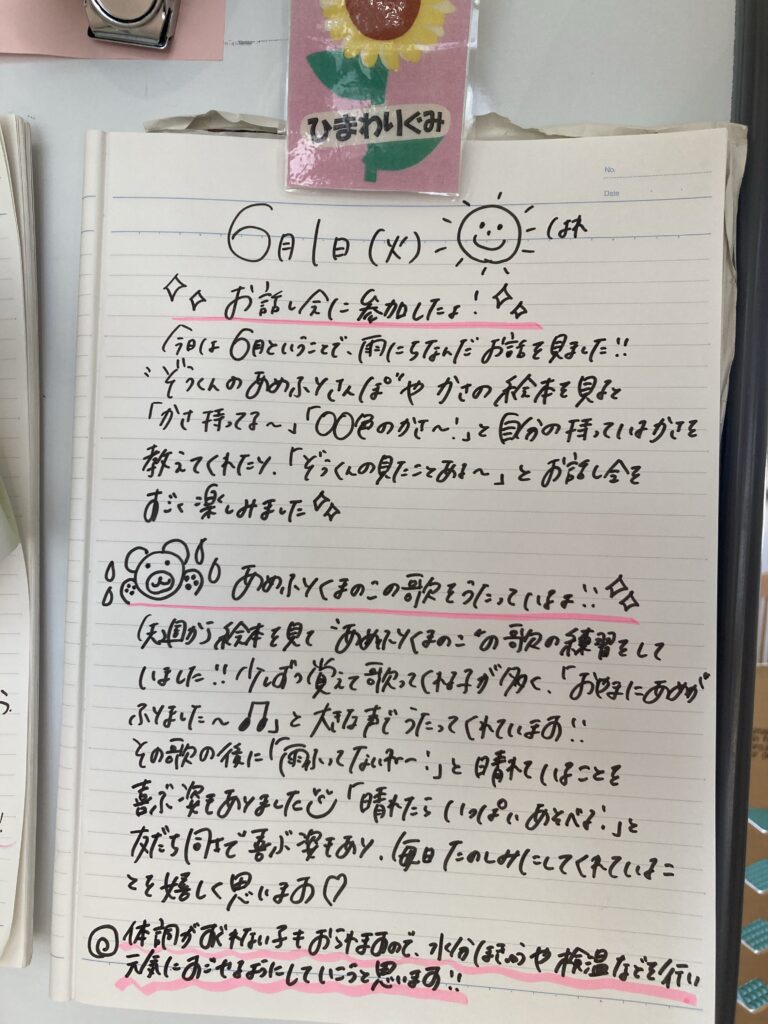 ひまわりぐみ
No.
Date
6月1日(火) はれ
お話し会に参加したよ!
今日は6月ということで、雨にちなんだお話を見ました!!
"ぞうくんのあめふりさんぽ"や かさの絵本を見ると
「かさ持ってる〜」「〇〇色のかさ〜!」と自分の持っているかさを
教えてくれたり、「ぞうくんの見たことある〜」とお話し会を
すごく楽しみました
あめふりくまのこの歌をうたっているよ!!
先週から絵本を見て"あめふりくまのこ"の歌の練習をして
いました!!少しずつ覚えて歌ってくれる子が多く、「おやまにあめが
ふりました〜♫」と大きな声でうたってくれています!!
その歌の後に「雨ふってないね〜!」と晴れていることを
喜ぶ姿もありました 「晴れたら いっぱい あそべる!」と
友だち同士で喜ぶ姿もあり、毎日たのしみにしてくれているこ
とを嬉しく思います♡
◎体調がすぐれない子もおられますので、水分ほきゅうや検温などを行い
元気にすごせるようにしていこうと思います!!